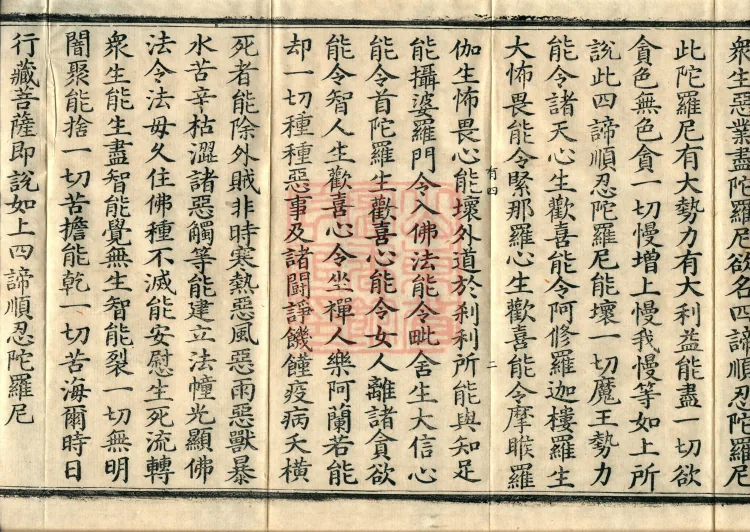 衆生惡業盡陀羅尼欲名四諦順忍陀羅尼
此陀羅尼有大勢力有大利益能盡一切欲
貪色無色貪一切慢增上慢我慢等如上所
說此四諦順忍陀羅尼能壞一切魔王勢力
能令諸天心生歡喜能令阿修羅迦樓羅生
大怖畏能令緊那羅心生歡喜能令摩睺羅
有四
二
伽生怖畏心能壞外道於刹利所能與知足
能攝婆羅門令入佛法能令毗舍生大信心
能令首陀羅生歡喜心能令女人離諸貪欲
能令智人生歡喜心令坐禪人樂阿蘭若能
却一切種種惡事及諸鬪諍饑饉疫病夭橫
死者能除外賊非時寒熱惡風惡雨惡獸暴
水苦辛枯澀諸惡觸等能建立法幢光顯佛
法令法毋久住佛種不滅能安慰生死流轉
衆生能生盡智能覺無生智能裂一切無明
闇聚能捨一切苦擔能乾一切苦海爾時日
行藏菩薩即說如上四諦順忍陀羅尼